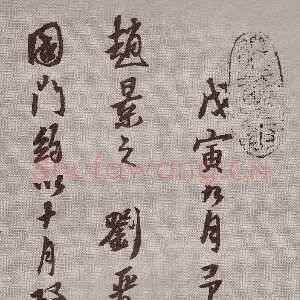 戊寅九月己
趙景之 劉
國門約以十月
shufawang.CN